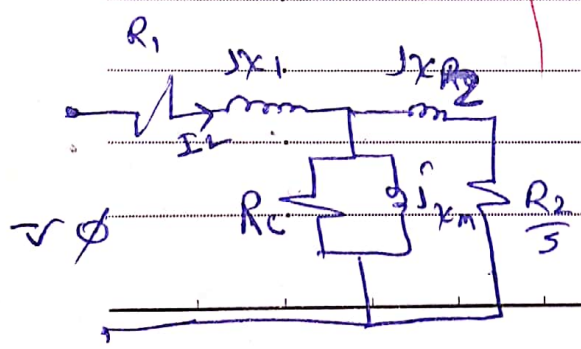 R1
jx1 jxR2
IL
Vφ Rc jxm R2/s